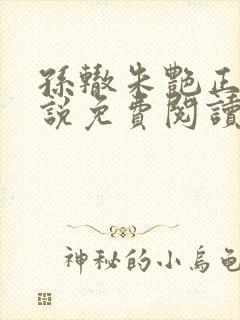 孫轍朱艷正
說免費閱讀
神秘的小烏龜